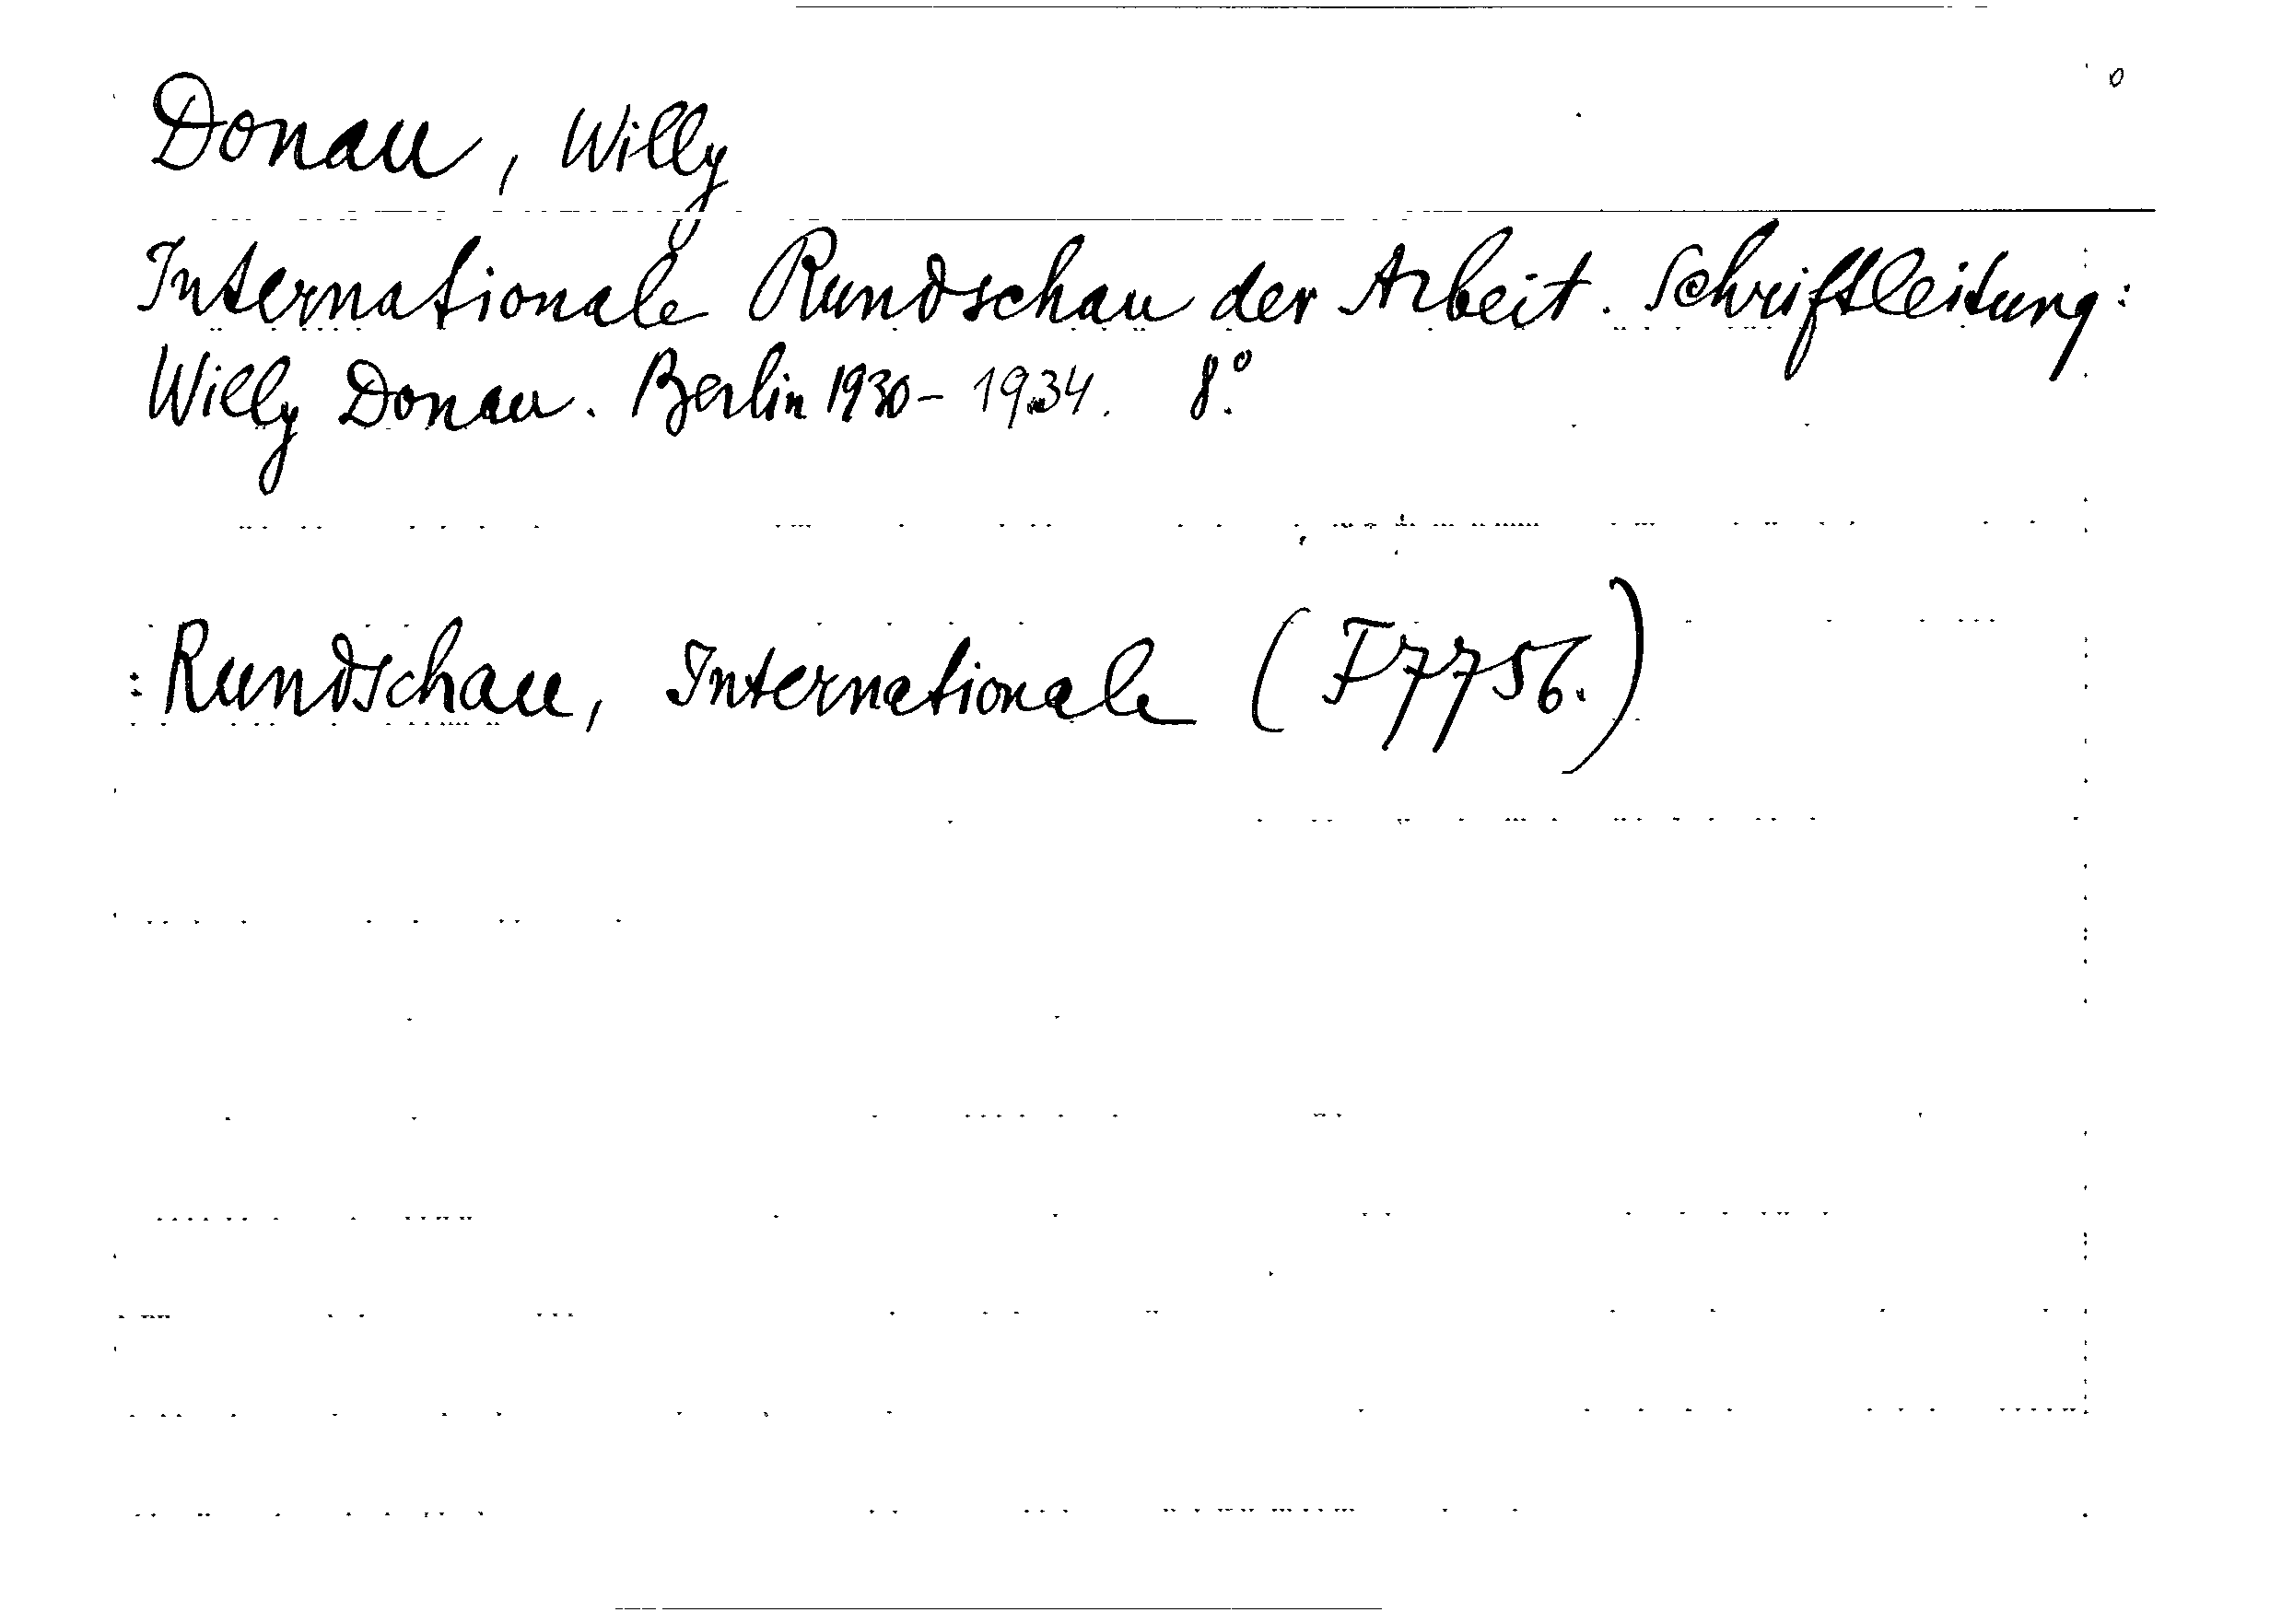 Donau, Willy
Internationale Rundschau der Arbeit. Schriftleitung:
Willy Donau. Berlin 1930-1934. 8.º
: Rundschau, Internationale (F7756.)